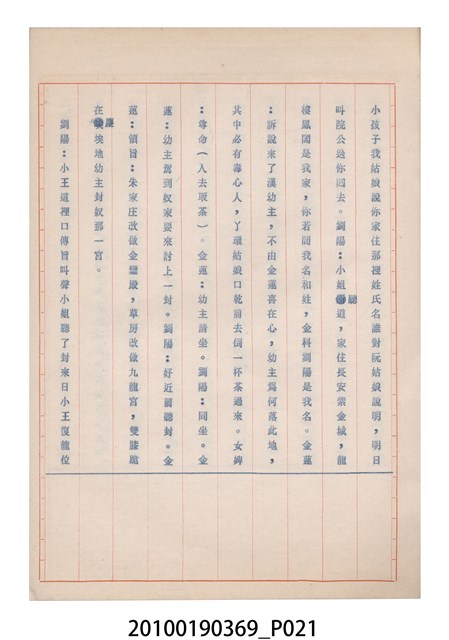 小孩子我姑娘說你家住那裡姓氏名誰對阮姑娘說明，明日
叫院公送你回去。劉陽：小姐聽道，家住長安紫金城，龍
樓鳳閣是我家，你若問我名和姓，金科劉陽是我名。金蓮
：訴說來了漢幼主，不由金蓮喜在心，幼主為何落此地，
其中必有毒心人，丫環姑娘口乾前去伺一杯茶過來。女婢
：尊命（入去取茶）。金蓮：幼主請坐。劉陽：同坐。金
蓮：幼主駕到奴家要來討上一封。劉陽：好近前聽封。金
蓮：領旨：朱家庄改做金鑾殿，草房改做九龍宮，雙膝跪
在塵埃地幼主封奴那一宮。
劉陽：小王這裡口傳旨叫聲小姐聽了封來日小王復龍位
20100190369_P021